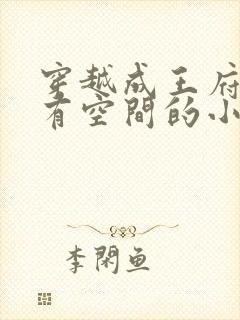 穿越成王府
有空間的小
李閑魚